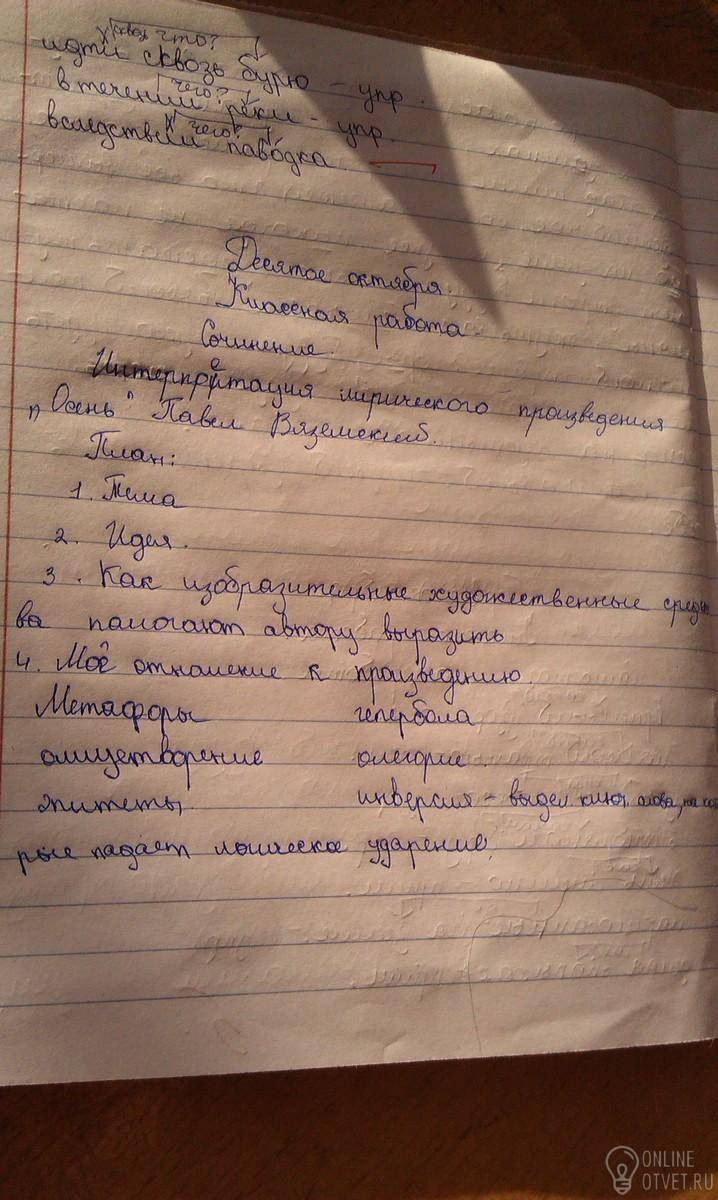 сквозь что?
идти сквозь бурю – упр.
чего?
в течении реки – упр.
чего?
вследствии паводка
Десятое октября.
Классная работа.
Сочинение.
Интерпретация лирического произведения
"Осень" Павел Вяземский.
План:
1. Тема
2. Идея.
3. Как изобразительные художественные средст
ва помогают автору выразить
4. Моё отношение к произведению.
Метафоры гепербола
олицетворение олегорие.
эпитеты. инверсия – выдел. ключ. слова, на кото
рые падает логическое ударение.
ONLINE
OTVET.RU